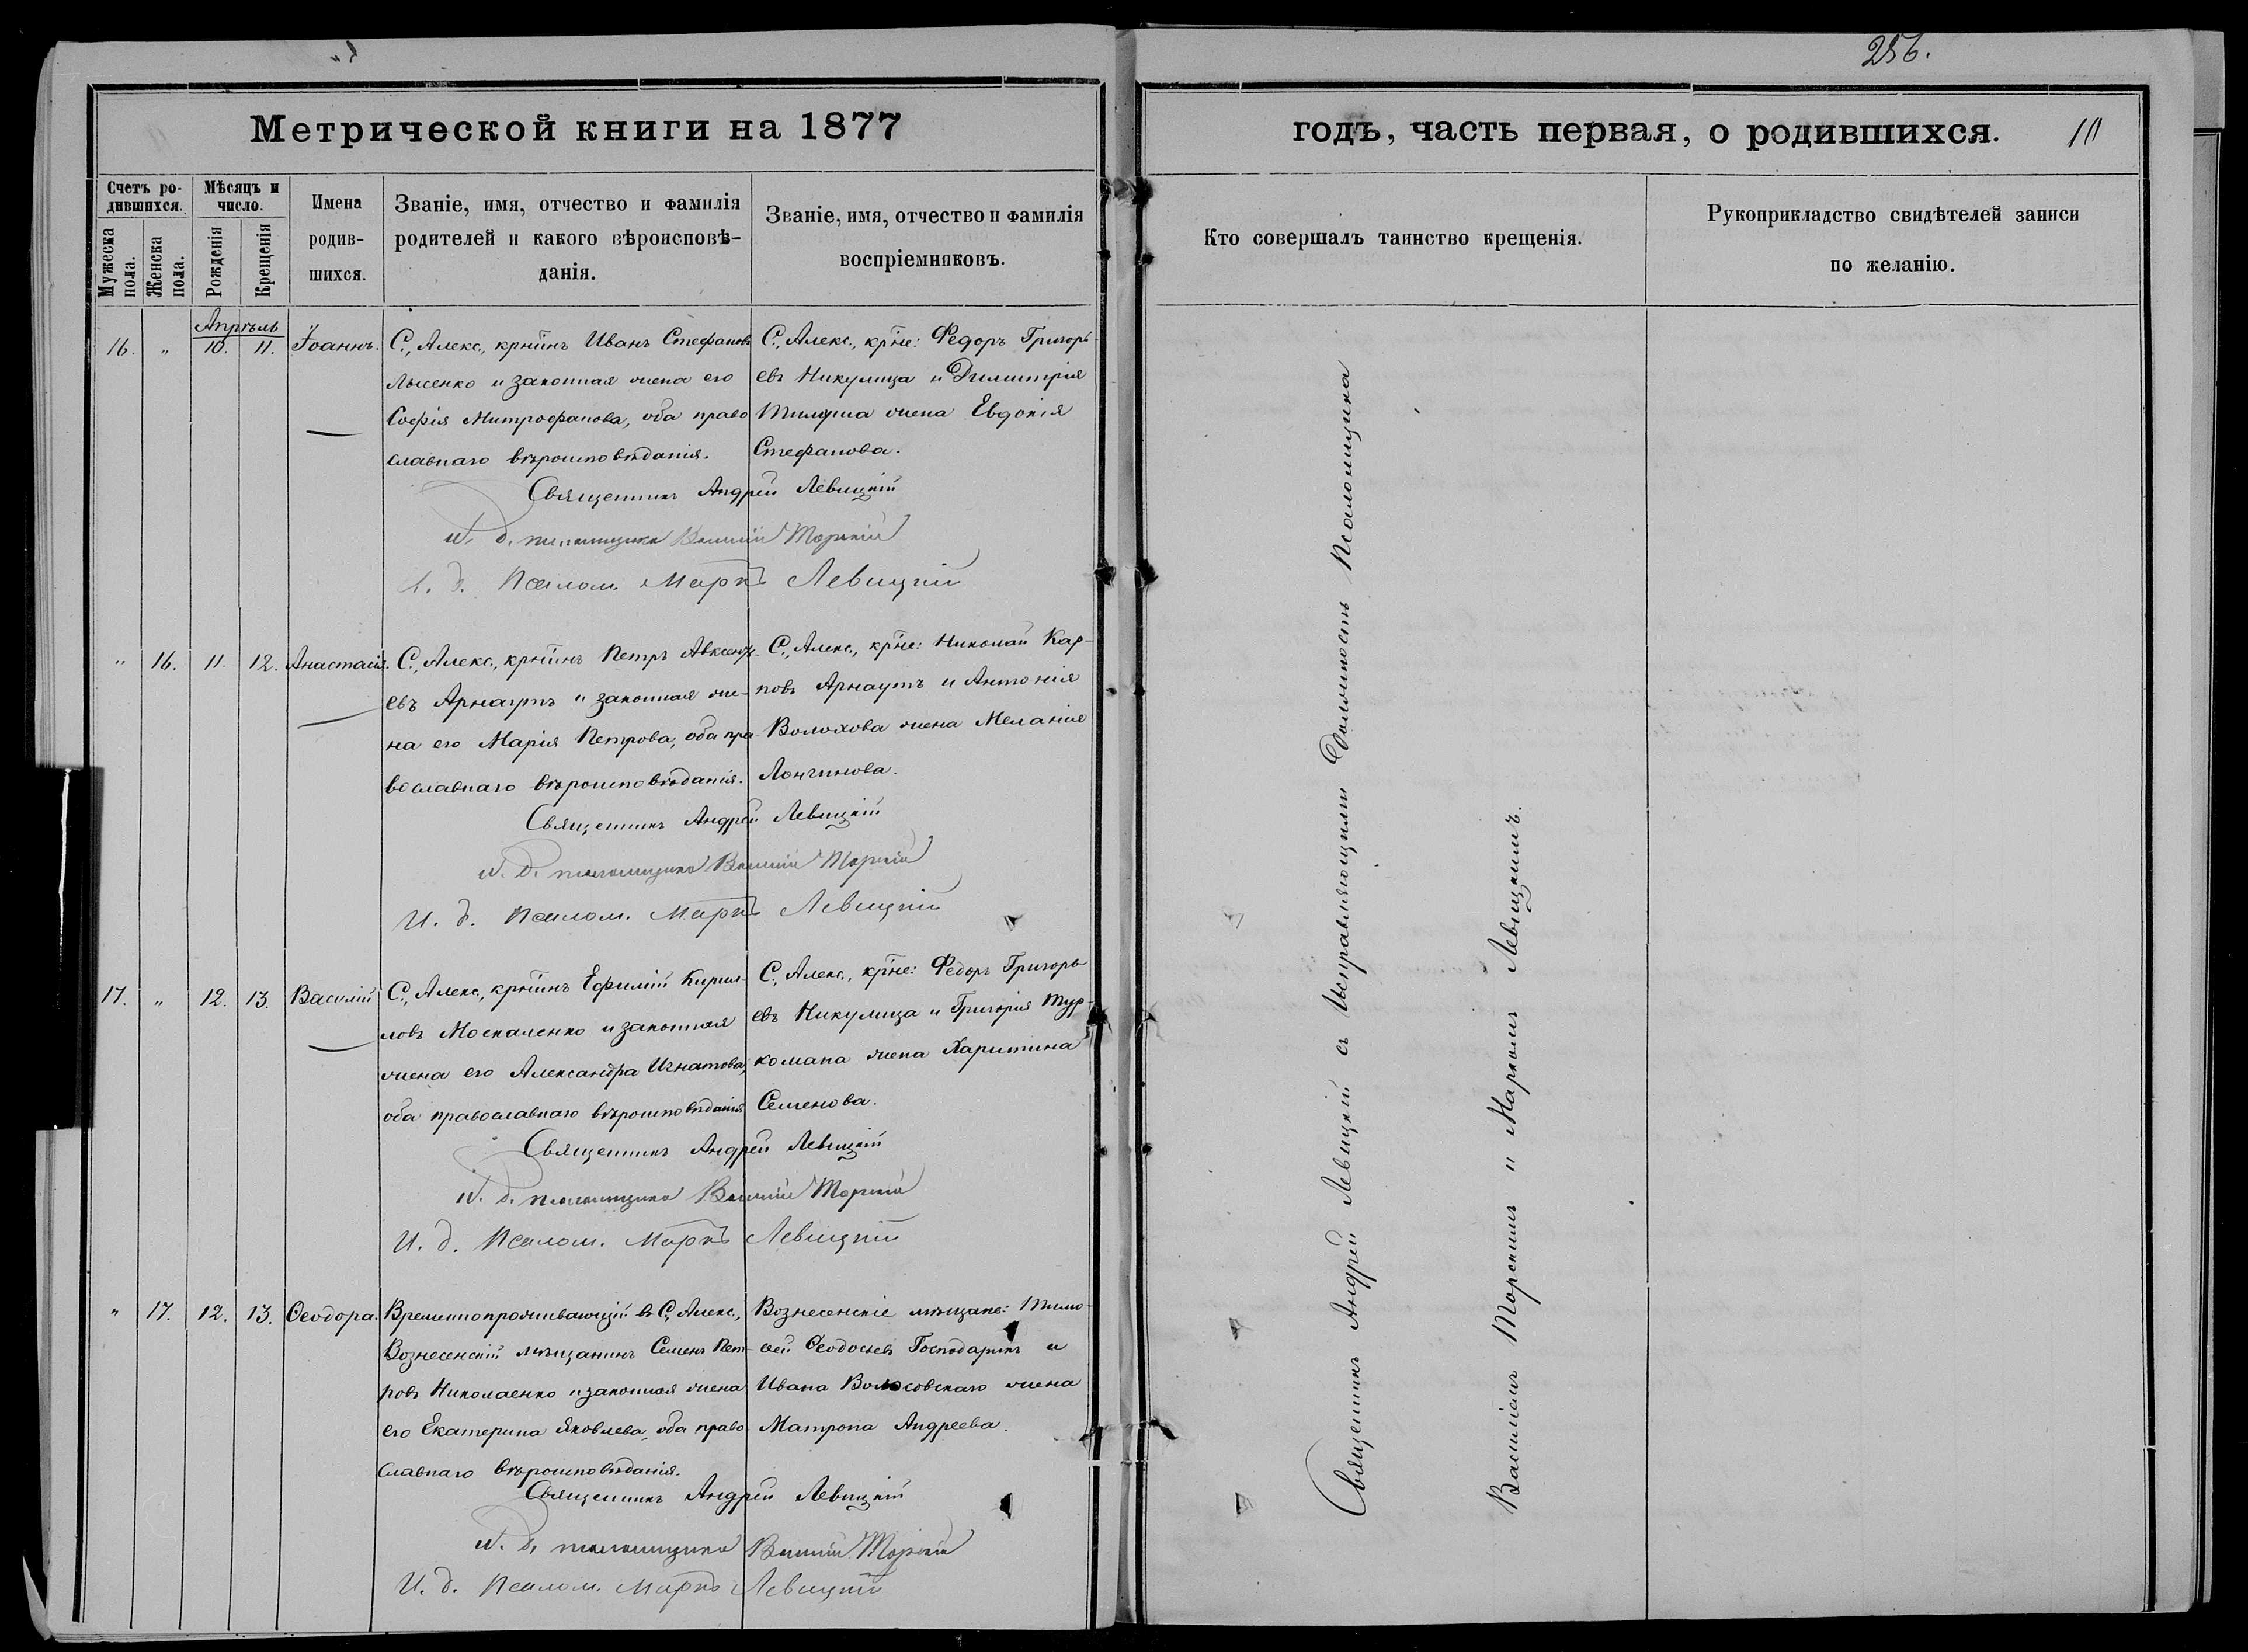 256.
Метрической книги на 1877
годъ, часть первая, о родившихся. 10
Счетъ родившихся.
Мужеска пола.
Женска пола.
Мѣсяцъ и число.
Рожденія
Крещенія
Имена родившихся.
Званіе, имя, отчество и фамилія родителей и какого вѣроисповѣданія.
Званіе, имя, отчество и фамилія воспріемниковъ.
Кто совершалъ таинство крещенія.
Рукоприкладство свидѣтелей записи по желанію.
Апрѣль
16. „ 10. 11. Іоаннъ.
С., Алекс., крнинъ Иванъ Стефановъ
Лысенко и законная жена его
Софія Митрофанова, оба право
славнаго вѣроисповѣданія.
С., Алекс., кр̃не: Федоръ Григорь-
евъ Никулица и Димитрія
жена Евдокія
Стефанова.
Священникъ Андрей Левицкій
И. д. псаломщика Василій Торскій
И. д. Псалом. Маркъ Левицкій
„ 16. 11. 12. Анастасія.
С., Алекс., крнинъ Петръ Авксенті-
евъ Арнаутъ и законная же-
на его Марія Петрова, оба пра-
вославнаго вѣроисповѣданія.
С., Алекс., кр̃не: Николай Кар-
повъ Арнаутъ и Антонія
Волохова жена Меланія
Лонгинова.
Священникъ Андрей Левицкій
И. д. псаломщика Василій Торскій
И. д. Псалом. Маркъ Левицкій
17. „ 12. 13. Василій
С., Алекс., крнинъ Ефимій Кирил-
ловъ Москаленко и законная
жена его Александра Игнатова,
оба православнаго вѣроисповѣданія
С., Алекс., кр̃не: Федоръ Григорь-
евъ Никулица и Григорія Тур-
комана жена Харитина
Семенова.
Священникъ Андрей Левицкій
И. д. псаломщика Василій Торскій
И. д. Псалом. Маркъ Левицкій
„ 17. 12. 13. Ѳеодора.
Временнопроживающій въ С., Алекс.,
Вознесенскій мѣщанинъ Семенъ Пет-
ровъ Николаенко и законная жена
его Екатерина Яковлева, оба право-
славнаго вѣроисповѣданія.
Вознесенскіе мѣщане: Тимо-
ѳей Ѳеодосьевъ Господарикъ и
Ивана Волосовскаго жена
Матрона Андреева.
Священникъ Андрей Левицкій
И. д. псаломщика Василій Торскій
И. д. Псалом. Маркъ Левицкій
Священникъ Андрей Левицкій съ Исправляющими Должность Псаломщика
Василіемъ Торскимъ и Маркомъ Левицкимъ.